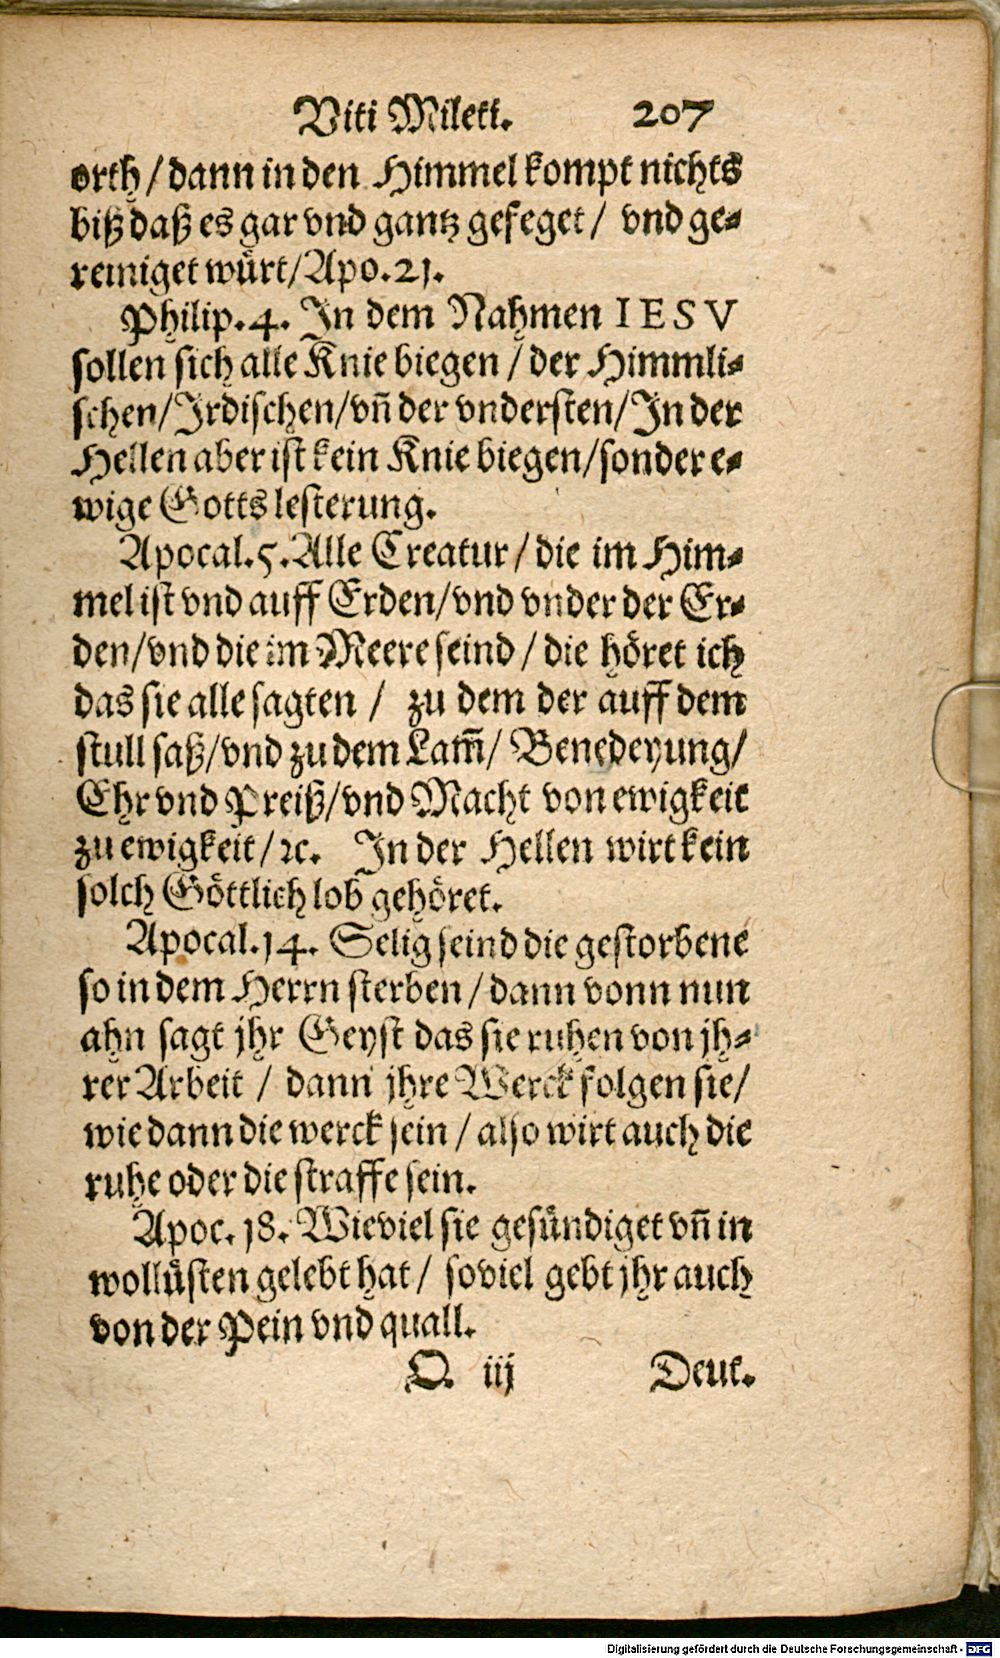 Viti Milett. 207
orth / dann in den Himmel kompt nichts
biß daß es gar vnd gantz gefeget / vnd ge-
reiniget würt/Apo.21.
Philip.4. In dem Nahmen IESV
sollen sich alle Knie biegen / der Himmli-
schen/Irdischen/vñ der vndersten/In der
Hellen aber ist kein Knie biegen/sonder e-
wige Gotts lesterung.
Apocal.5.Alle Creatur / die im Him-
mel ist vnd auff Erden/vnd vnder der Er-
den/vnd die im Meere seind / die höret ich
das sie alle sagten / zu dem der auff dem
stull saß/vnd zu dem Lam̃/ Benedeyung/
Ehr vnd Preiß/vnd Macht von ewigkeit
zu ewigkeit/ꝛc. In der Hellen wirt kein
solch Göttlich lob gehöret.
Apocal.14. Selig seind die gestorbene
so in dem Herrn sterben / dann vonn nun
ahn sagt jhr Geyst das sie ruhen von jh-
rer Arbeit / dann jhre Werck folgen sie/
wie dann die werck sein / also wirt auch die
ruhe oder die straffe sein.
Apoc.18. Wieviel sie gesündiget vñ in
wollüsten gelebt hat / soviel gebt jhr auch
von der Pein vnd quall.
O iij Deut.
Digitalisierung gefördert durch die Deutsche Forschungsgemeinschaft - DFG